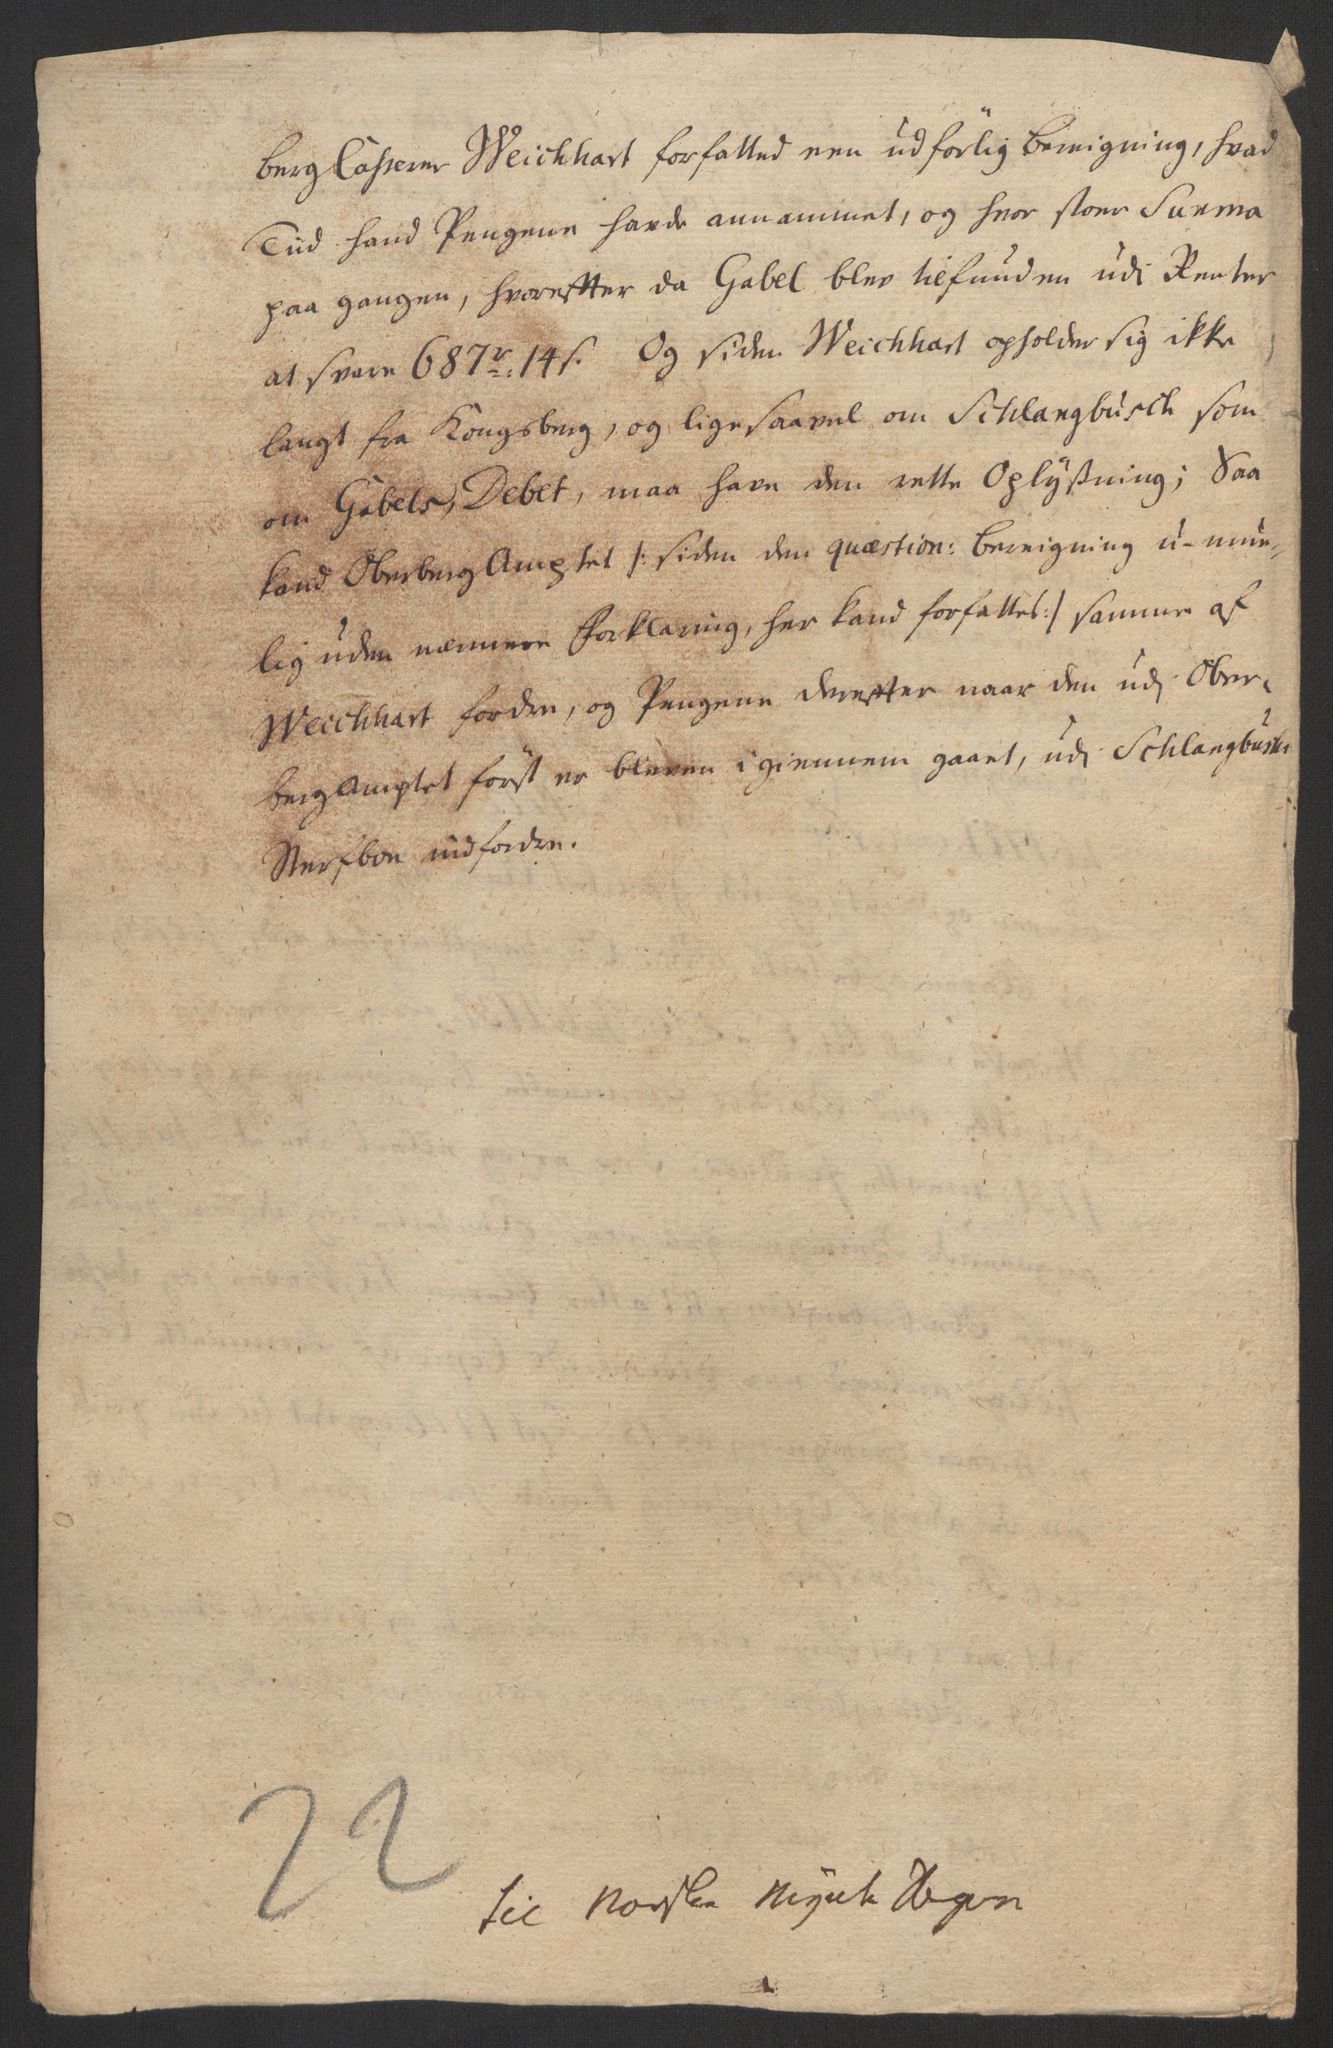 berg Casserer Weichhart forfatted een udförlig bereigning, hvad
Tiid hand Pengene hafde annammet, og hvor stoer Summa
paa gangen, hvorefter da Gabel blev tilfunden udi Renter
at svare 687 r: 14 s. Og siden Weichhart opholder sig ikke
langt fra Kongsberg, og ligesaavel om Schlangbusch som
om Gabels, Debet, maa have den rette Oplysning; Saa
kand OberbergAmptet /: siden den quæstion: bereigning u-mue-
lig uden nærmere Forklaring, her kand forfattes:/ samme af
Weichhart fordre, og Pengene derefter naar den udi Ober-
bergAmptet först er bleven igiennem gaaet, udi Schlangbusches
Sterfboe indfordre.
22
til Norske Mynte